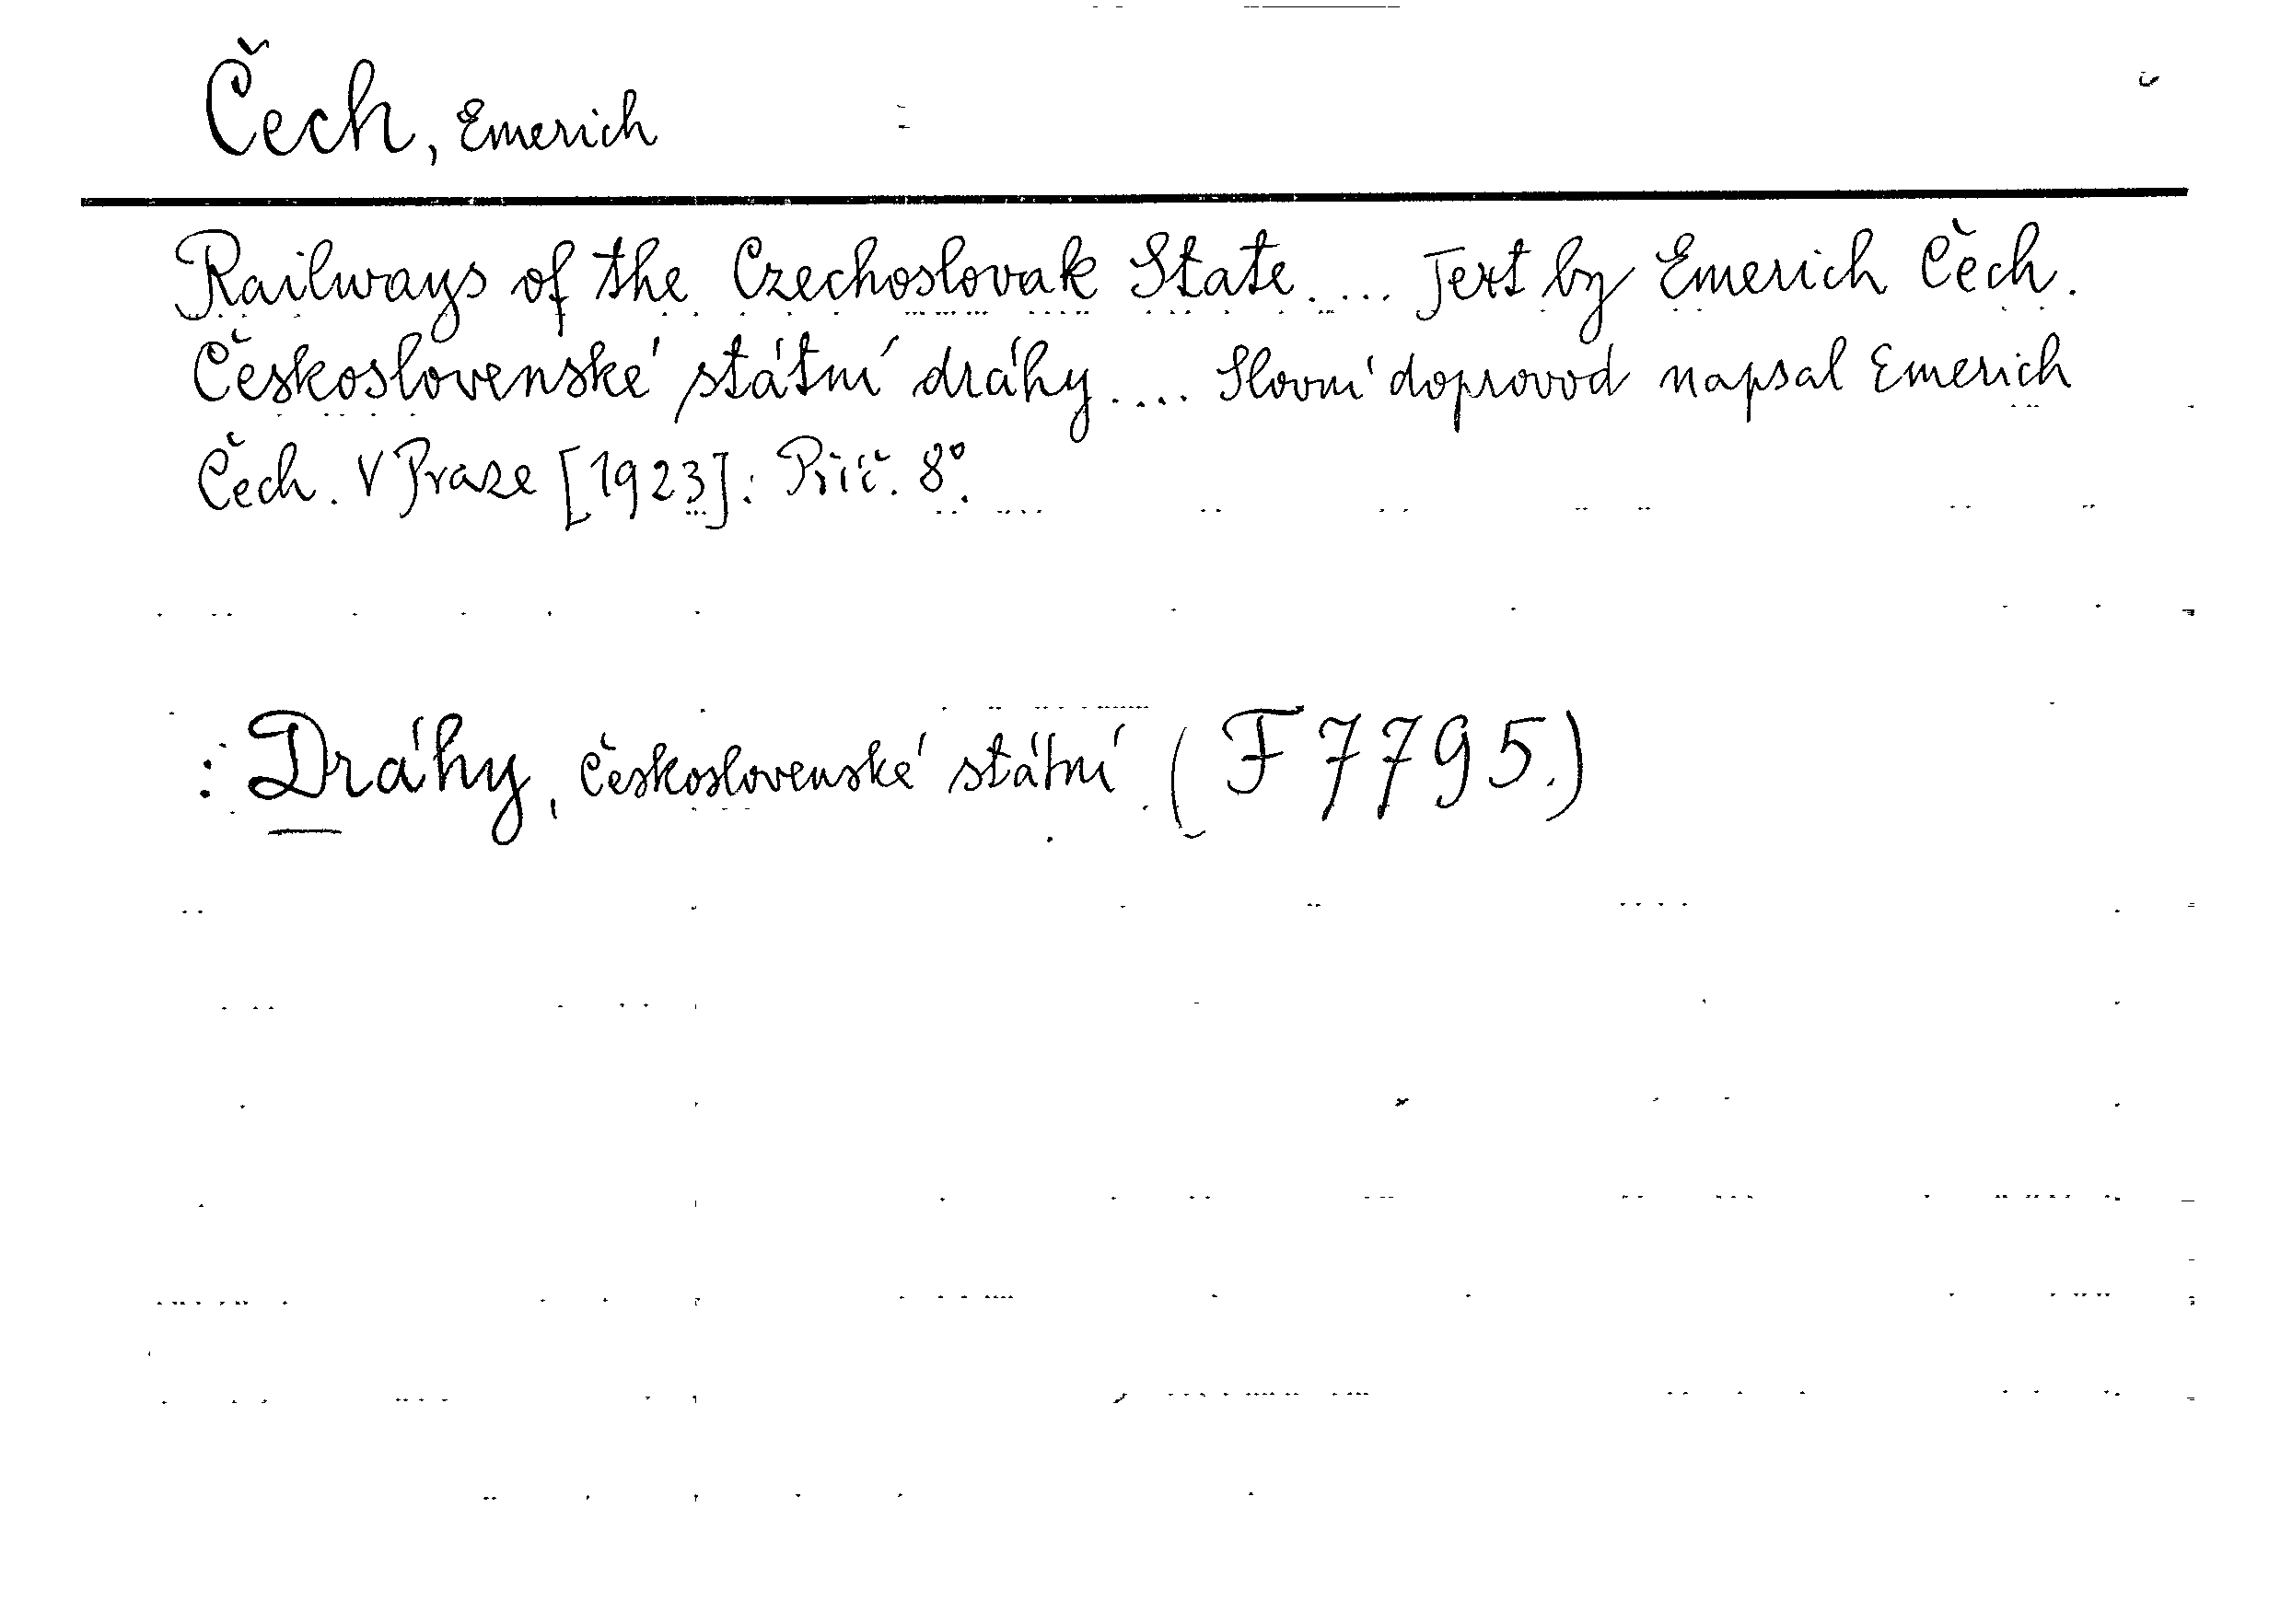 Čech, Emerich
Railways of the Czechoslovak State.... Text by Emerich Čech.
Československé státní dráhy.... Slovní doprovod napsal Emerich
Čech. V Praze [1923]: Příč. 8°.
: Dráhy, československé státní. (F 7795.)